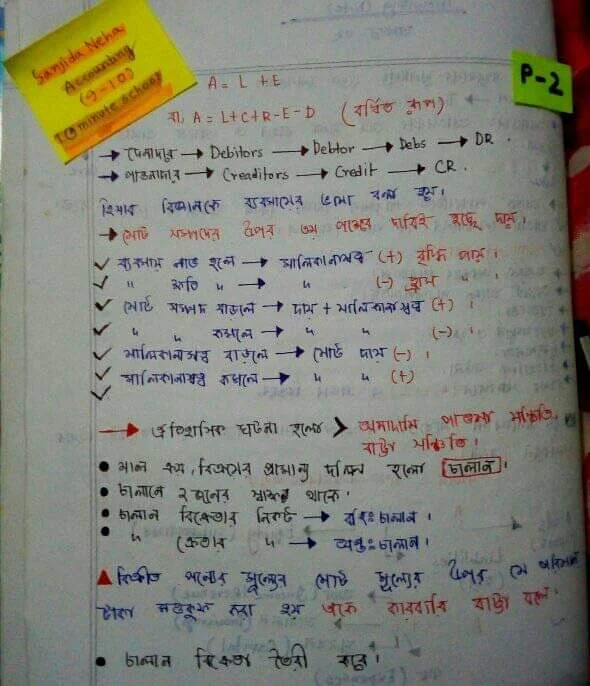 Sanjida Neha
Accounting
(9-10)
10 minute school
P-2
A = L + E
বা, A = L+C+R-E-D (বর্ধিত রূপ)
→ দেনাদার → Debitors → Debtor → Debs → DR.
→ পাওনাদার → Creaditors → Credit → CR.
হিসাব বিজ্ঞানকে ব্যবসায়ের ভাষা বলা হয়।
→ মোট সম্পদের উপর ৩য় পক্ষের দাবিই হচ্ছে দায়।
✓ ব্যবসায় লাভ হলে → মালিকানাস্বত্ব (+) বৃদ্ধি পায়।
✓ " ক্ষতি " → " (-) হ্রাস "
✓ মোট সম্পদ বাড়লে → দায় + মালিকানাস্বত্ব (+)।
✓ " " কমলে → " " (-)।
✓ মালিকানাস্বত্ব বাড়লে → মোট দায় (-)।
✓ মালিকানাস্বত্ব কমলে → " " (+)
✓
→ ঘটনা হলো > অনাদায়ী পাওনা সঞ্চিতি,
বাট্টা সঞ্চিতি।
• মাল ক্রয়, বিক্রয়ের প্রামাণ্য দলিল হলো চালান।
• চালানে ২ জনের স্বাক্ষর থাকে।
• চালান বিক্রেতার নিকট → বহিঃচালান।
• " ক্রেতার " → অন্তঃচালান।
▲ বিক্রীত পণ্যের মূল্যের মোট মূল্যের উপর যে পরিমাণ
টাকা মওকুফ করা হয় তাকে কারবারি বাট্টা বলে।
• চালান বিক্রেতা তৈরী করে।